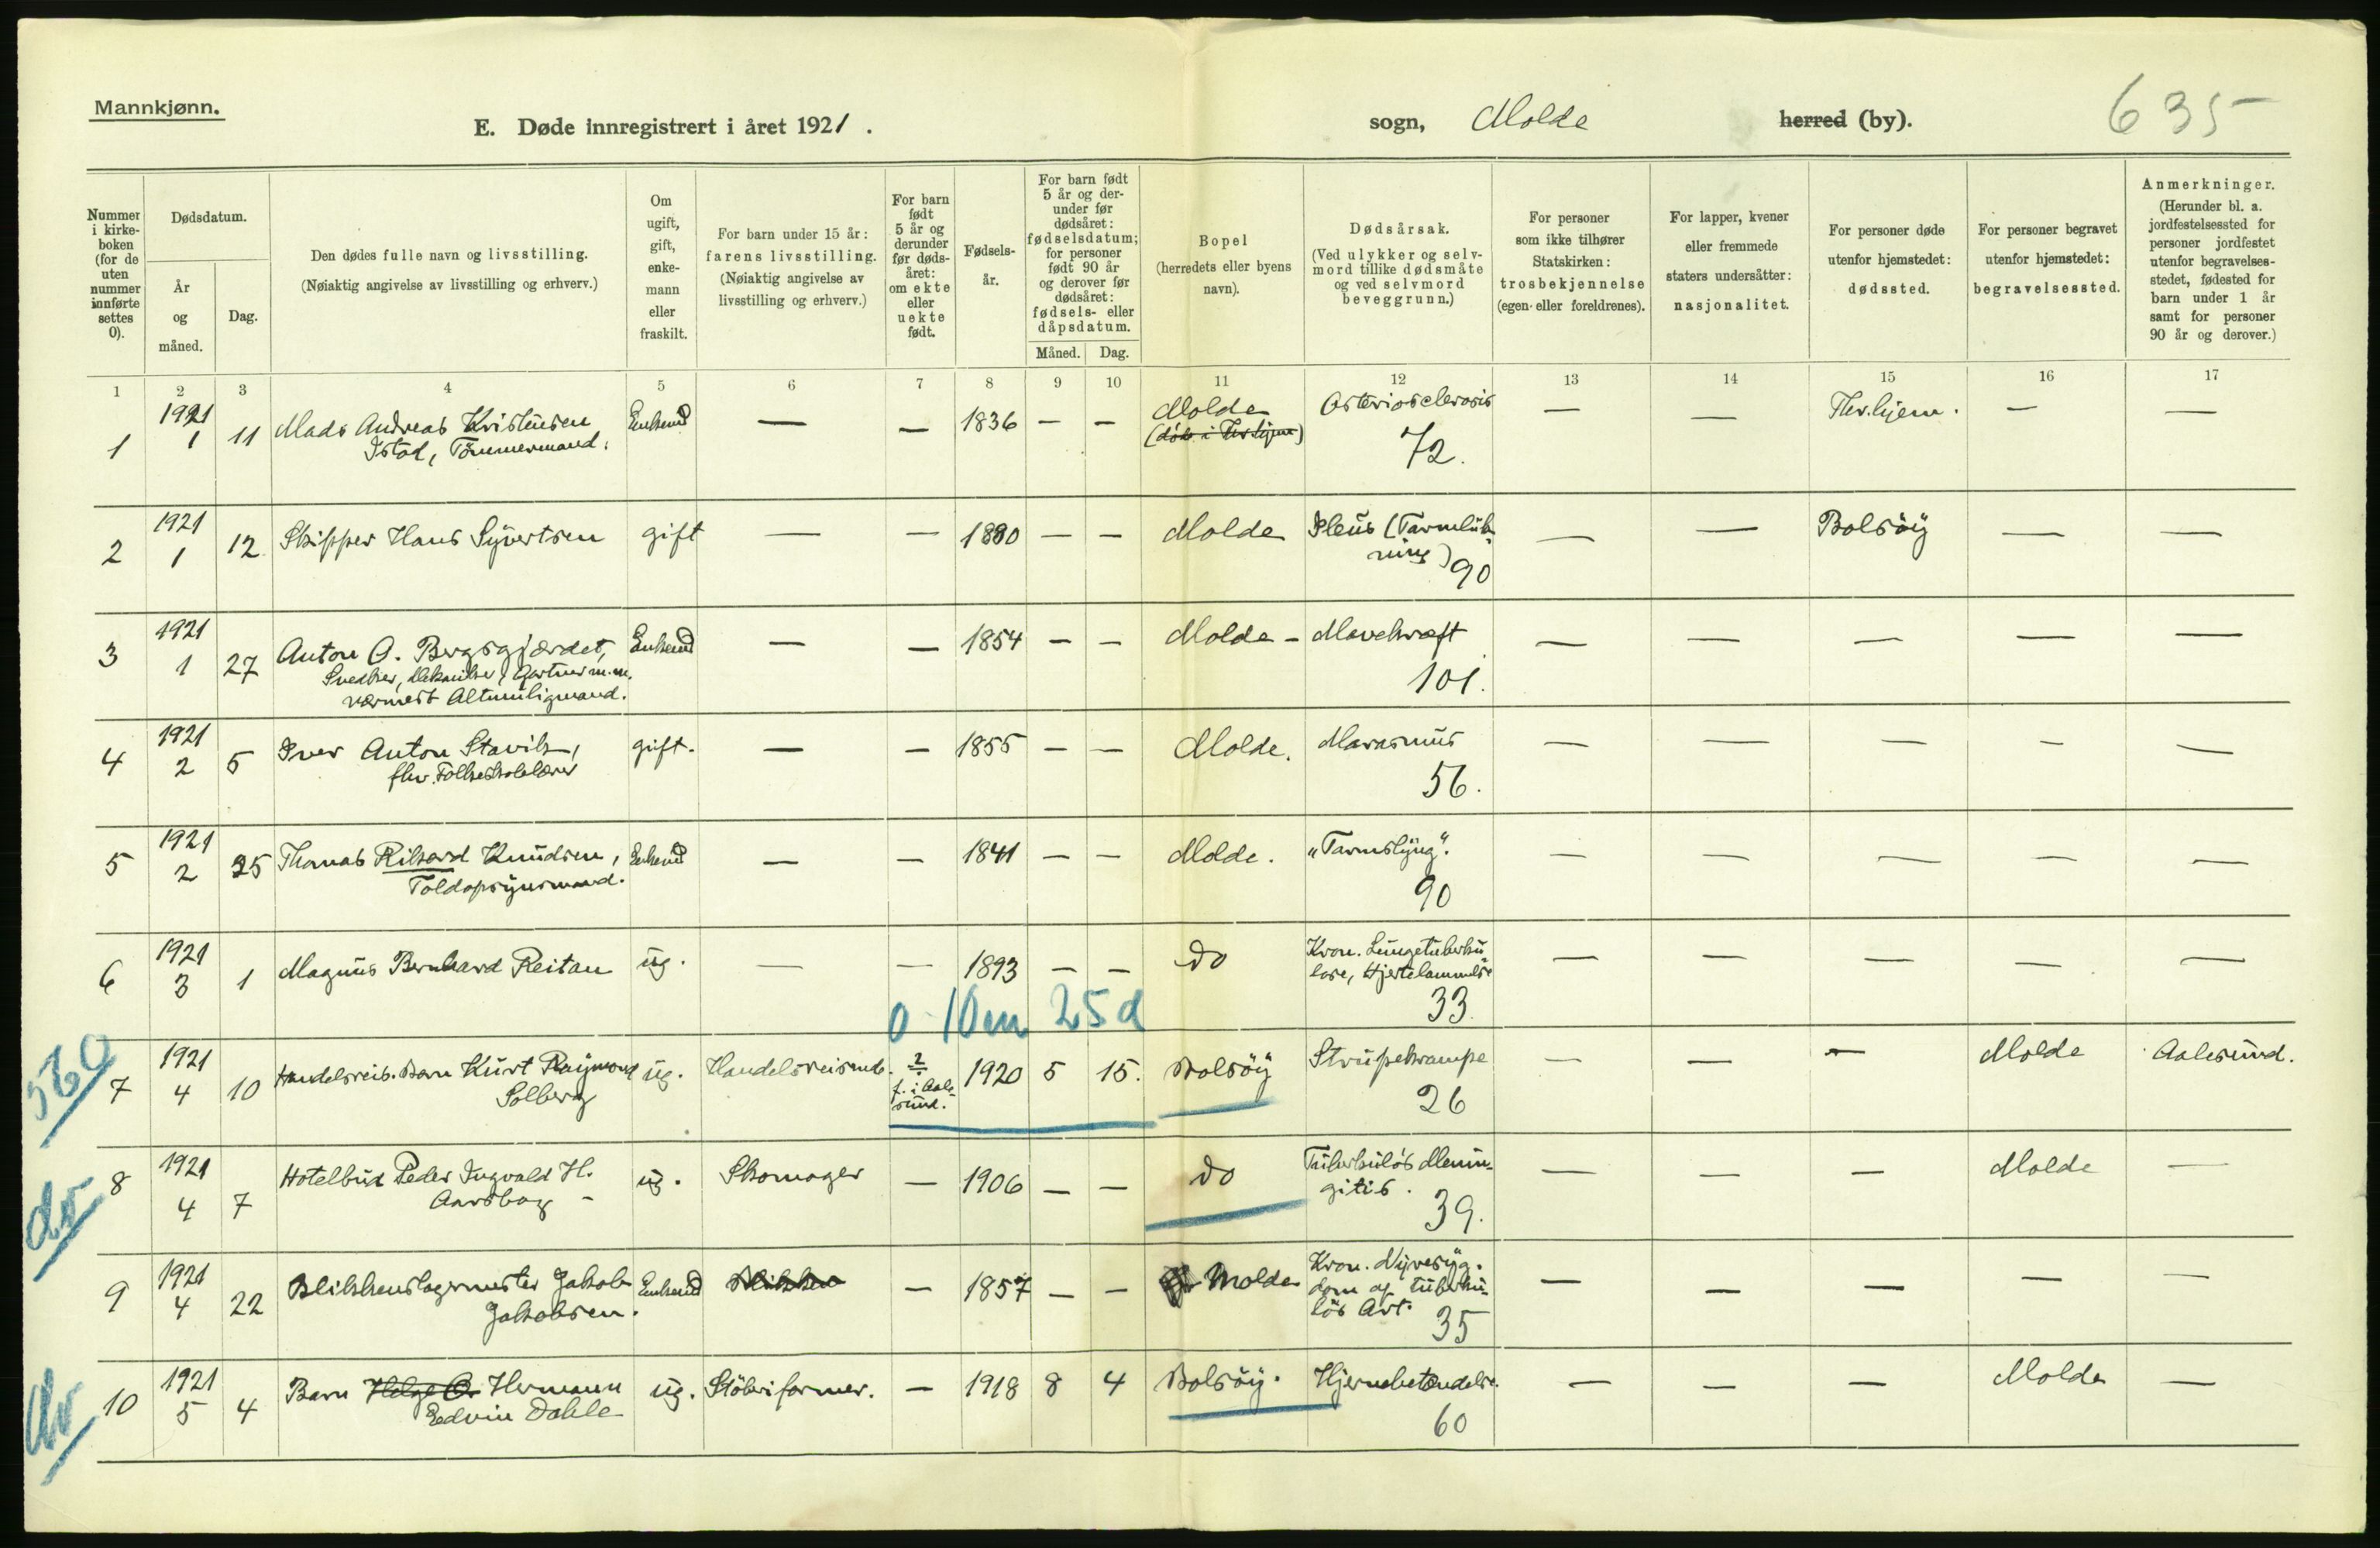 Mannkjønn.
E. Døde innregistrert i året 1921.
sogn, Molde herred (by).
635
Nummer i kirkeboken (for de uten nummer innførte settes 0).
Dødsdatum.
År og måned.
Dag.
Den dødes fulle navn og livsstilling.
(Nøiaktig angivelse av livsstilling og erhverv.)
Om ugift, gift, enkemann eller fraskilt.
For barn under 15 år: farens livsstilling.
(Nøiaktig angivelse av livsstilling og erhverv.)
For barn født 5 år og derunder før dødsåret: om ekte eller uekte født.
Fødselsår.
For barn født 5 år og derunder før dødsåret: fødselsdatum; for personer født 90 år og derover før dødsåret: fødsels- eller dåpsdatum.
Måned. Dag.
Bopel (herredets eller byens navn).
Dødsårsak.
(Ved ulykker og selvmord tillike dødsmåte og ved selvmord beveggrunn.)
For personer som ikke tilhører Statskirken: trosbekjennelse (egen eller foreldrenes).
For lapper, kvener eller fremmede staters undersåtter: nasjonalitet.
For personer døde utenfor hjemstedet: dødssted.
For personer begravet utenfor hjemstedet: begravelsessted.
Anmerkninger.
(Herunder bl. a. jordfestelsessted for personer jordfestet utenfor begravelsesstedet, fødested for barn under 1 år samt for personer 90 år og derover.)
1 2 3 4 5 6 7 8 9 10 11 12 13 14 15 16 17
1 1921 1 11 Mads Andreas Kristensen Enkemd — — 1836 — — Molde Arteriosclerosis — — — —
Istad, Tömmermand.
72.
2 1921 1 12 Skipper Hans Syvertsen gift — — 1880 — — Molde Ileus (Tarmluk-
ning) 90 — — Bolsöy — —
3 1921 1 27 Anton O. Bergsgjærdet, Enkemd — — 1854 — — Molde - Mavekræft — — — — —
Snedker, Mekaniker, Gartner m.m.
nærmest Altmuligmand.
101.
4 1921 2 5 Iver Anton Stavik, gift. — — 1855 — — Molde. Marasmus — — — — —
fhv. Folkeskolelærer
56.
5 1921 2 25 Thomas Rikard Knudsen, Enkemd — — 1841 — — Molde. „Tarmslyng". — — — — —
Toldopsynsmand.
90
6 1921 3 1 Magnus Bernhard Reitan ug. — — 1893 — — do Kron. Lungetuberku-
lose, Hjertelammelse — — — — —
33.
0 10m 25d
560
7 1921 4 10 Handelsreis. Barn Kurt Raymond ug. Handelsreisende. ? 1920 5 15. Bolsöy Strupekrampe — — — Molde Aalesund.
Solberg
f. i Aale-
sund.
26
do
8 1921 4 7 Hotelbud Peder Ingvald H. ug. Skomager — 1906 — — do Tuberkulös Menin-
gitis. — — — Molde —
39.
9 1921 4 22 Blikkenslagermester Jakob Enkemd — 1857 — — Molde Kron. Nyresyg-
Jakobsen.
dom af tuberku-
lös Art. 35 — — — — —
do
10 1921 5 4 Barn Hermann ug. Stöberiformer. — 1918 8 4 Bolsöy. Hjernebetændelse. — — — Molde —
Edvin Dahle
60